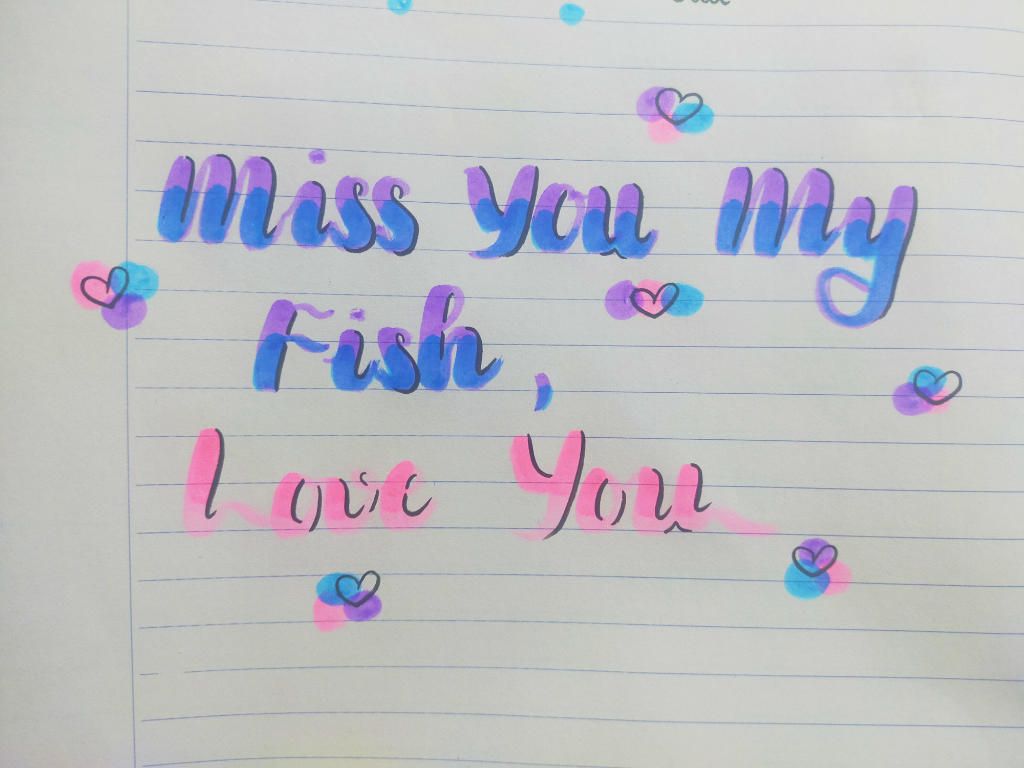 Miss You My
Fish,
Love You